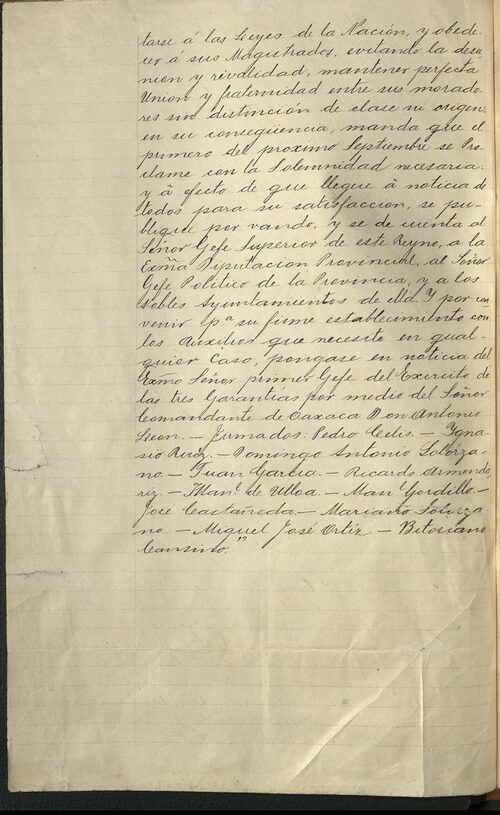 tarse á las Leyes de la Nación, y obede-
cer á sus Magistrados, evitando la desu
nion y rivalidad, mantener perfecta
Union y fraternidad entre sus morado-
res sin distinción de clase ni origen;
en su consegüencia, manda que el
primero del proximo Septiembre se Pro-
clame con la Solemnidad necesaria
y á efecto de que llegue á noticia de
todos para su satisfaccion, se pu-
blique por vando, y se de cuenta al
Señor Gefe Superior de este Reyno, a la
Exmã Diputacion Provincial, al Señor
Gefe Politico de la Provincia, y a los
Nobles Ayuntamientos de ella. Y por con
venir pª su firme establecimiento con
los Auxilios que necesite en qual-
quier Caso, pongase en noticia del
Exmo Señor primer Gefe del Exercito de
las tres Garantias por medio del Señor
Comandante de Oaxaca Don Antonio
Leon. — Firmados: Pedro Celis. — Ygna-
sio Ruiz. — Domingo Antonio Solorza-
no. — Juan Garcia. — Ricardo Armenda
riz. — Manl. de Ulloa. — Manl. Gordillo. —
José Castañeda. — Mariano Solorza
no. — Miguel José Ortíz — Bitoriano
Cansino."